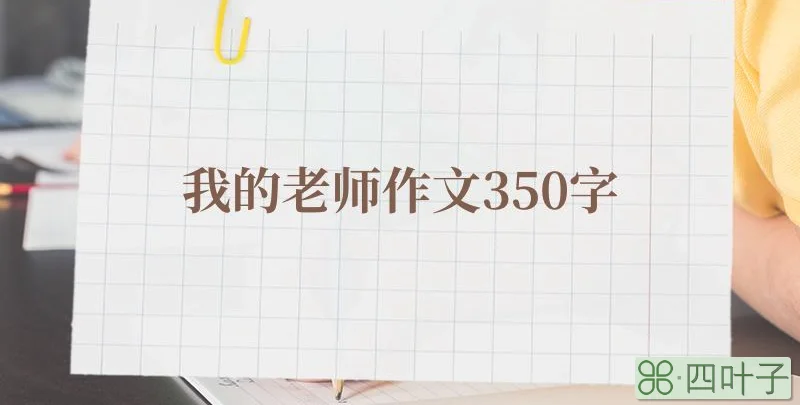 我的老师作文350字
四叶子